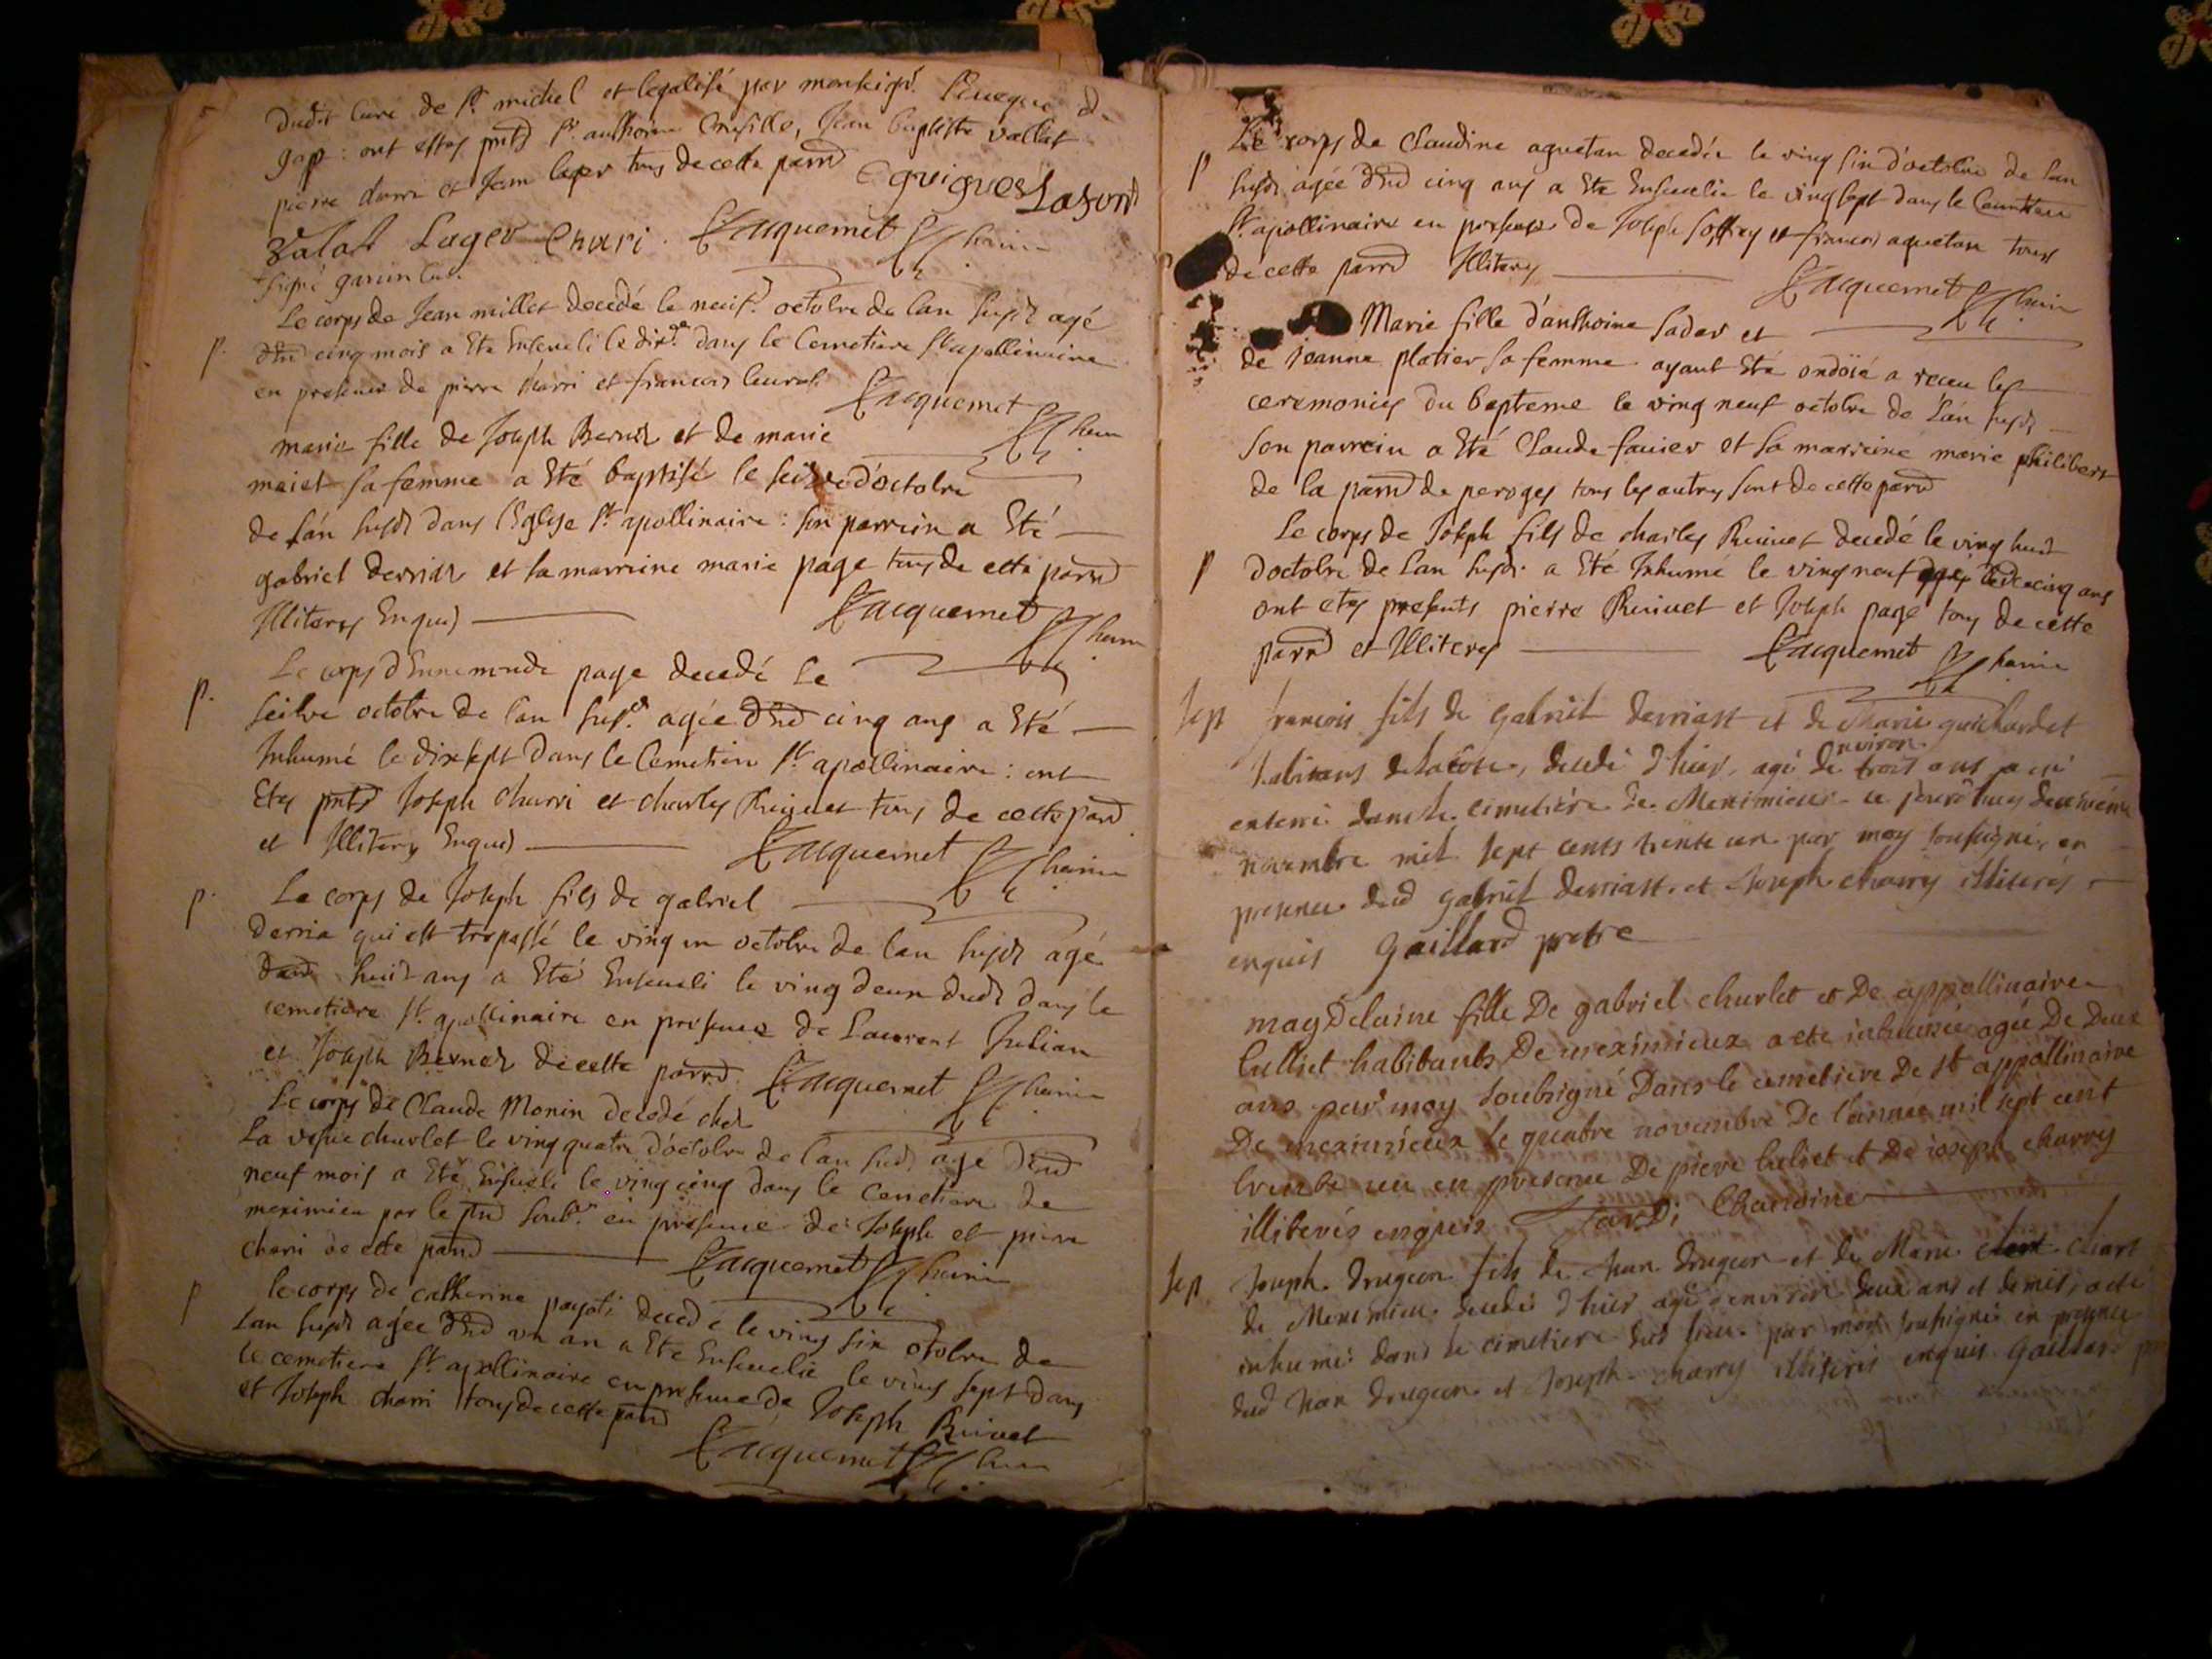 dudit curé de St michel et legalisé par monseigr. l'eveque de
gap : ont estes pnts Sr. anthoine, Jean baptiste vallat
pierre charri et Jean lager tous de cette parr
guigues Lafont
Valat Lager Charri Jacquemet
signé garcin curé.
Le corps de Jean millet decedé le neuf octobre de l'an susdt agé
d'En cinq mois a Eté Enseveli le dix dans le Cemetiere St apollinaire
p.
en presence de pierre charri et francois
Jacquemet
marie fille de Joseph Berned et de marie
meiet sa femme a Eté baptisé le seizre d'octobre
de l'an susdt dans l'Eglise St apollinaire : son parrein a Eté
gabriel derriar et sa marreine marie page tous de cette parr
Illiteres Enquis
Jacquemet
Le corps d'Ennemonde page decedé le
p.
seizre octobre de l'an susd. agée d'En cinq ans a Eté
Inhumé le dixsept dans le Cemetiere St apollinaire : ont
Etes pnts Joseph charri et charles tous de cette parr
et Illiteres Enquis
Jacquemet
p.
Le corps de Joseph fils de gabriel
derria qui est trepassé le vingt un octobre de l'an susdt agé
d'En huit ans a Eté Enseveli le ving deux dudt dans le
cemetiere St apollinaire en presence de Laurent Julian
et Joseph Berned de cette parr. Jacquemet
Le corps de Claude Monin decedé ches
La vefve churlet le ving quatre d'octobre de l'an susd. agé d'En
neuf mois a Eté Enseveli le ving cinq dans le Cemetiere de
meximieu par le pnt soubs. en presence de Joseph et pierre
charri de cette parr
Jacquemet
p
le corps de catherine payoti decedé le ving six octobre de
l'an susdt agée d'En un an a Eté Ensevelie le ving sept dans
le cemetiere St apollinaire en presence de Joseph Rivivet
et Joseph charri tous de cette parr
Jacquemet
Le corps de Claudine aguetan decedée le ving six d'octobre de l'an
p
susdt agée d'En cinq ans a Eté Ensevelie le ving sept dans le Cemetiere
St apollinaire en presence de Joseph soffrey et francois aguetan tous
de cette parr Illiteres
Jacquemet
Marie fille d'anthoine sader et
de jeanne platier sa femme ayant Eté ondoié a receu les
ceremonies du bapteme le ving neuf octobre de l'an susdt
son parrein a Eté Claude favier et sa marreine marie philibert
de la parr de peroges tous les autres sont de cette parr
Le corps de Joseph fils de charles Rivivet decedé le ving huit
p
d'octobre de l'an susdt. a Eté Inhumé le ving neuf cinq ans
ont etes presents pierre Rivivet et Joseph page tous de cette
parr et Illiteres
Jacquemet
Sep
francois fils de gabriel derriast et de Marie guichardet
habitans de la cote, decedé d'hier, agé d'environ trois ans a eté
enterré dans le cimetiere de Meximieux ce jourd'huy deuxieme
novembre mil sept cents trente un par moy soussigné, en
presence dud gabriel derriast et Joseph charry illiterés
enquis Gaillard pretre
magDelaine fille De gabriel churlet et De appollinaire
Culliet habitants De meximieux a ete inhumée agée De Deux
ans par moy soubsigné Dans le cemetiere De st appollinaire
De meximieux le quatre novembre De l'année mil sept cent
trente un en presence De piere culiet et De joseph charry
illiterés enquis Tardi Chanoine
Sep
Joseph drugeon fils de Jean drugeon et de Marie Chart
de Meximieu decedé d'hier agé d'environ deux ans et demis, a eté
inhumé dans le cimetiere dud lieu par moi soussigné en presence
dud Jean drugeon et Joseph charry illiteris enquis Gaillard